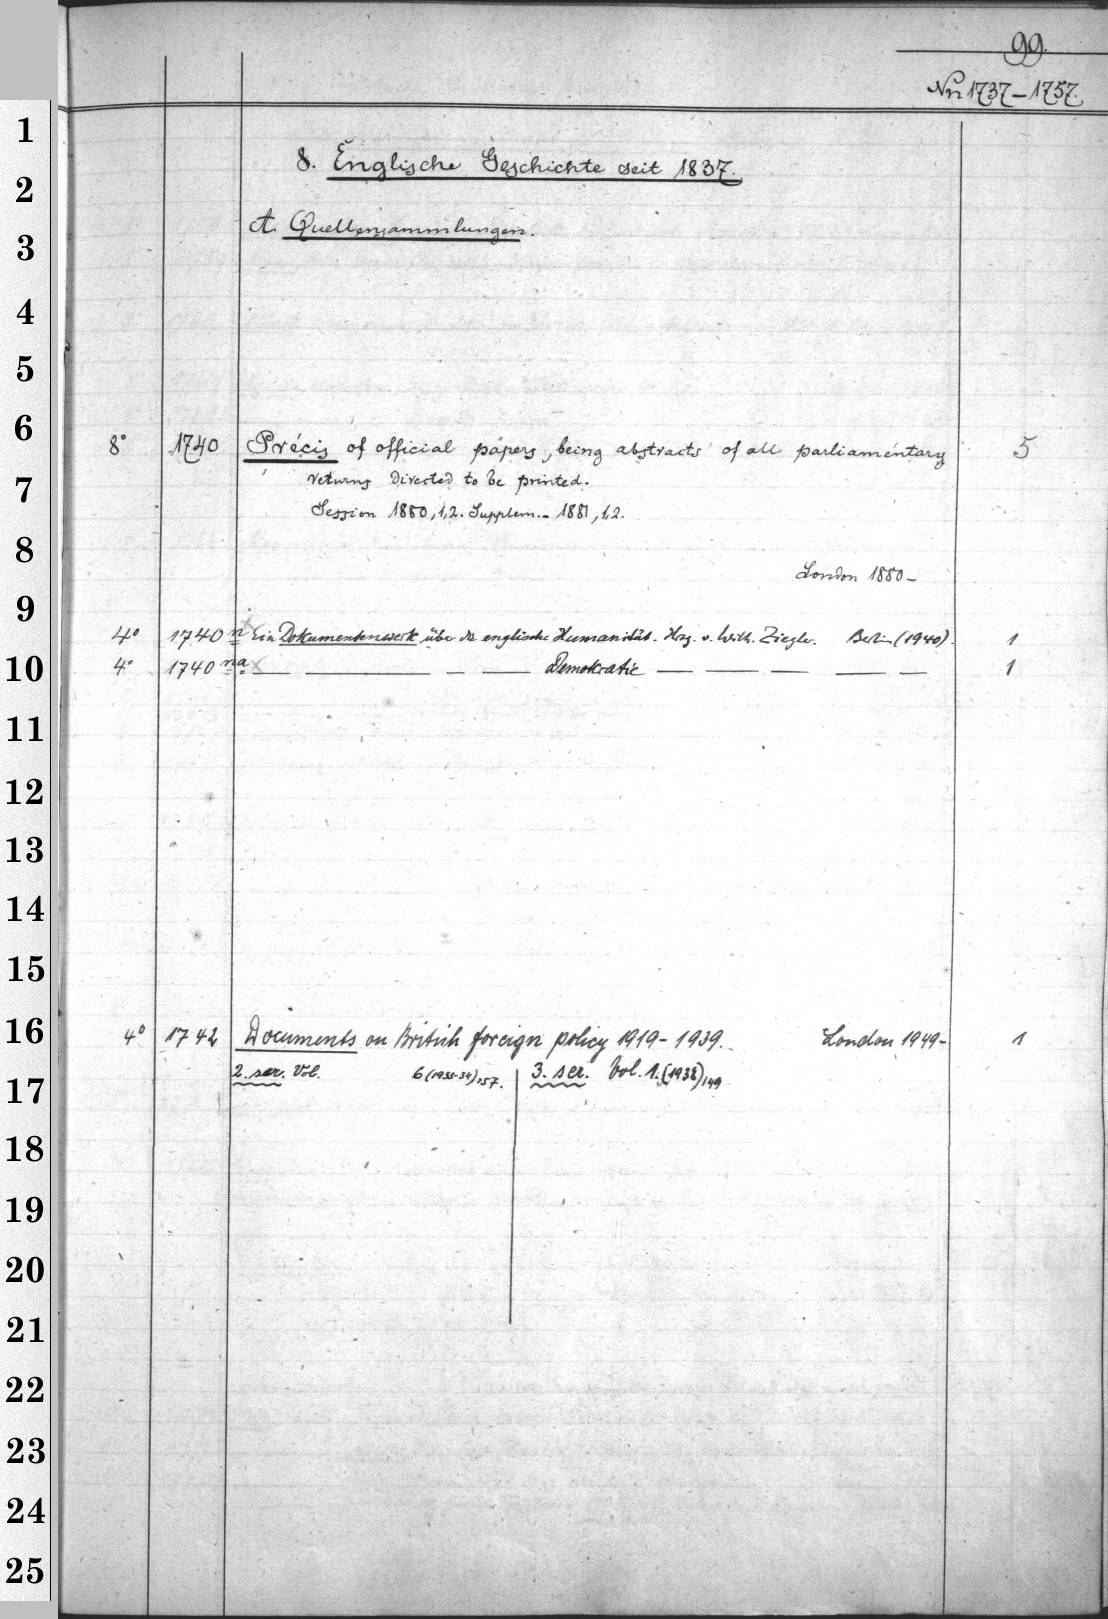 99.
Nr. 1737-1757.
8. Englische Geschichte seit 1837.
A. Quellensammlungen.
8° 1740 Précis of official papers, being abstracts of all parliamentary 5
returns directed to be printed.
Session 1880, 1,2. Supplem. - 1881, 1,2.
London 1880-
4° 1740 n Ein Dokumentenwerk über die englische Humanität. Hrg. v. Wilh. Ziegler. Berlin (1940). 1
4° 1740 na — — — — Demokratie — — — — — 1
4° 1742 Documents on British foreign policy 1919-1939. London 1949- 1
2. ser. Vol. 6 (1933-34),157. 3. ser. Vol. 1. (1938),149
1
2
3
4
5
6
7
8
9
10
11
12
13
14
15
16
17
18
19
20
21
22
23
24
25